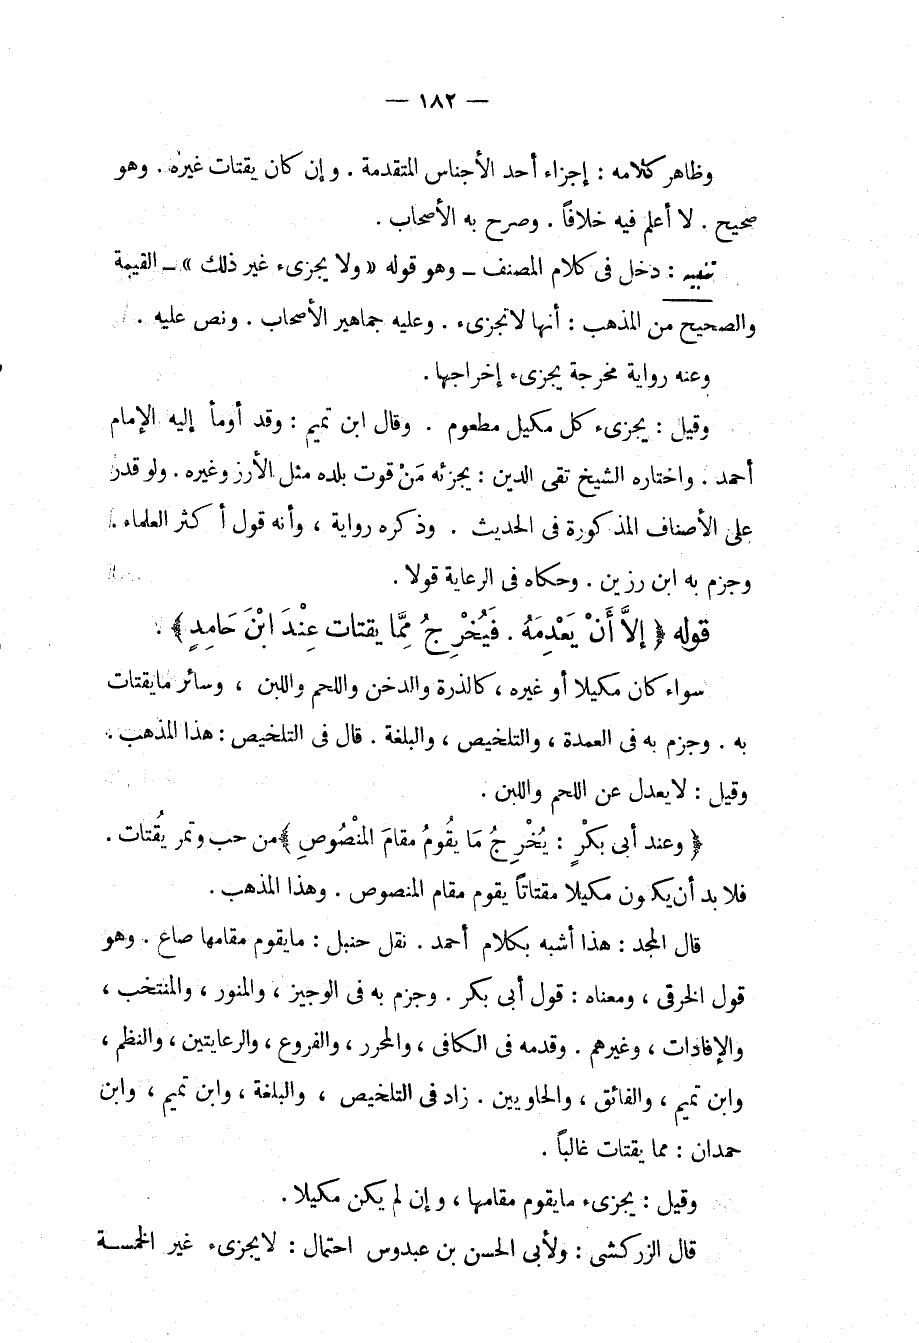 — ١٨٢ —
وظاهر كلامه : إجزاء أحد الأجناس المتقدمة . وإن كان يقتات غيره . وهو
صحيح . لا أعلم فيه خلافاً . وصرح به الأصحاب .
تنبيه : دخل فى كلام المصنف ـ وهو قوله « ولا يجزىء غير ذلك » ـ القيمة
والصحيح من المذهب : أنها لاتجزىء . وعليه جماهير الأصحاب . ونص عليه .
وعنه رواية مخرجة يجزىء إخراجها .
وقيل : يجزىء كل مكيل مطعوم . وقال ابن تميم : وقد أومأ إليه الإمام
أحمد . واختاره الشيخ تقى الدين : يجزئه مَنْ قوت بلده مثل الأرز وغيره . ولو قدر
على الأصناف المذكورة فى الحديث . وذكره رواية ، وأنه قول أكثر العلماء .
وجزم به ابن رزين . وحكاه فى الرعاية قولا .
قوله ﴿ إلاَّ أَنْ يَعْدِمَهُ . فَيُخْرِجُ مِمَّا يقتات عِنْدَ ابْنَ حَامِدٍ ﴾ .
سواء كان مكيلا أو غيره ، كالذرة والدخن واللحم واللبن ، وسائر مايقتات
به . وجزم به فى العمدة ، والتلخيص ، والبلغة . قال فى التلخيص : هذا المذهب .
وقيل : لايعدل عن اللحم واللبن .
﴿ وعند أبى بكْرٍ : يُخْرِجُ مَا يقُومُ مقامَ المنْصُوصِ ﴾ من حب وتمر يُقتات .
فلابد أن يكون مكيلا مقتاتاً يقوم مقام المنصوص . وهذا المذهب .
قال المجد : هذا أشبه بكلام أحمد . نقل حنبل : مايقوم مقامها صاع . وهو
قول الخرقى ، ومعناه : قول أبى بكر . وجزم به فى الوجيز ، والمنور ، والمنتخب ،
والإفادات ، وغيرهم . وقدمه فى الكافى ، والمحرر ، والفروع ، والرعايتين ، والنظم ،
وابن تميم ، والفائق ، والحاويين . زاد فى التلخيص ، والبلغة ، وابن تميم ، وابن
حمدان : مما يقتات غالباً .
وقيل : يجزىء مايقوم مقامها ، وإن لم يكن مكيلا .
قال الزركشى : ولأبى الحسن بن عبدوس احتمال : لايجزىء غير الخمسة